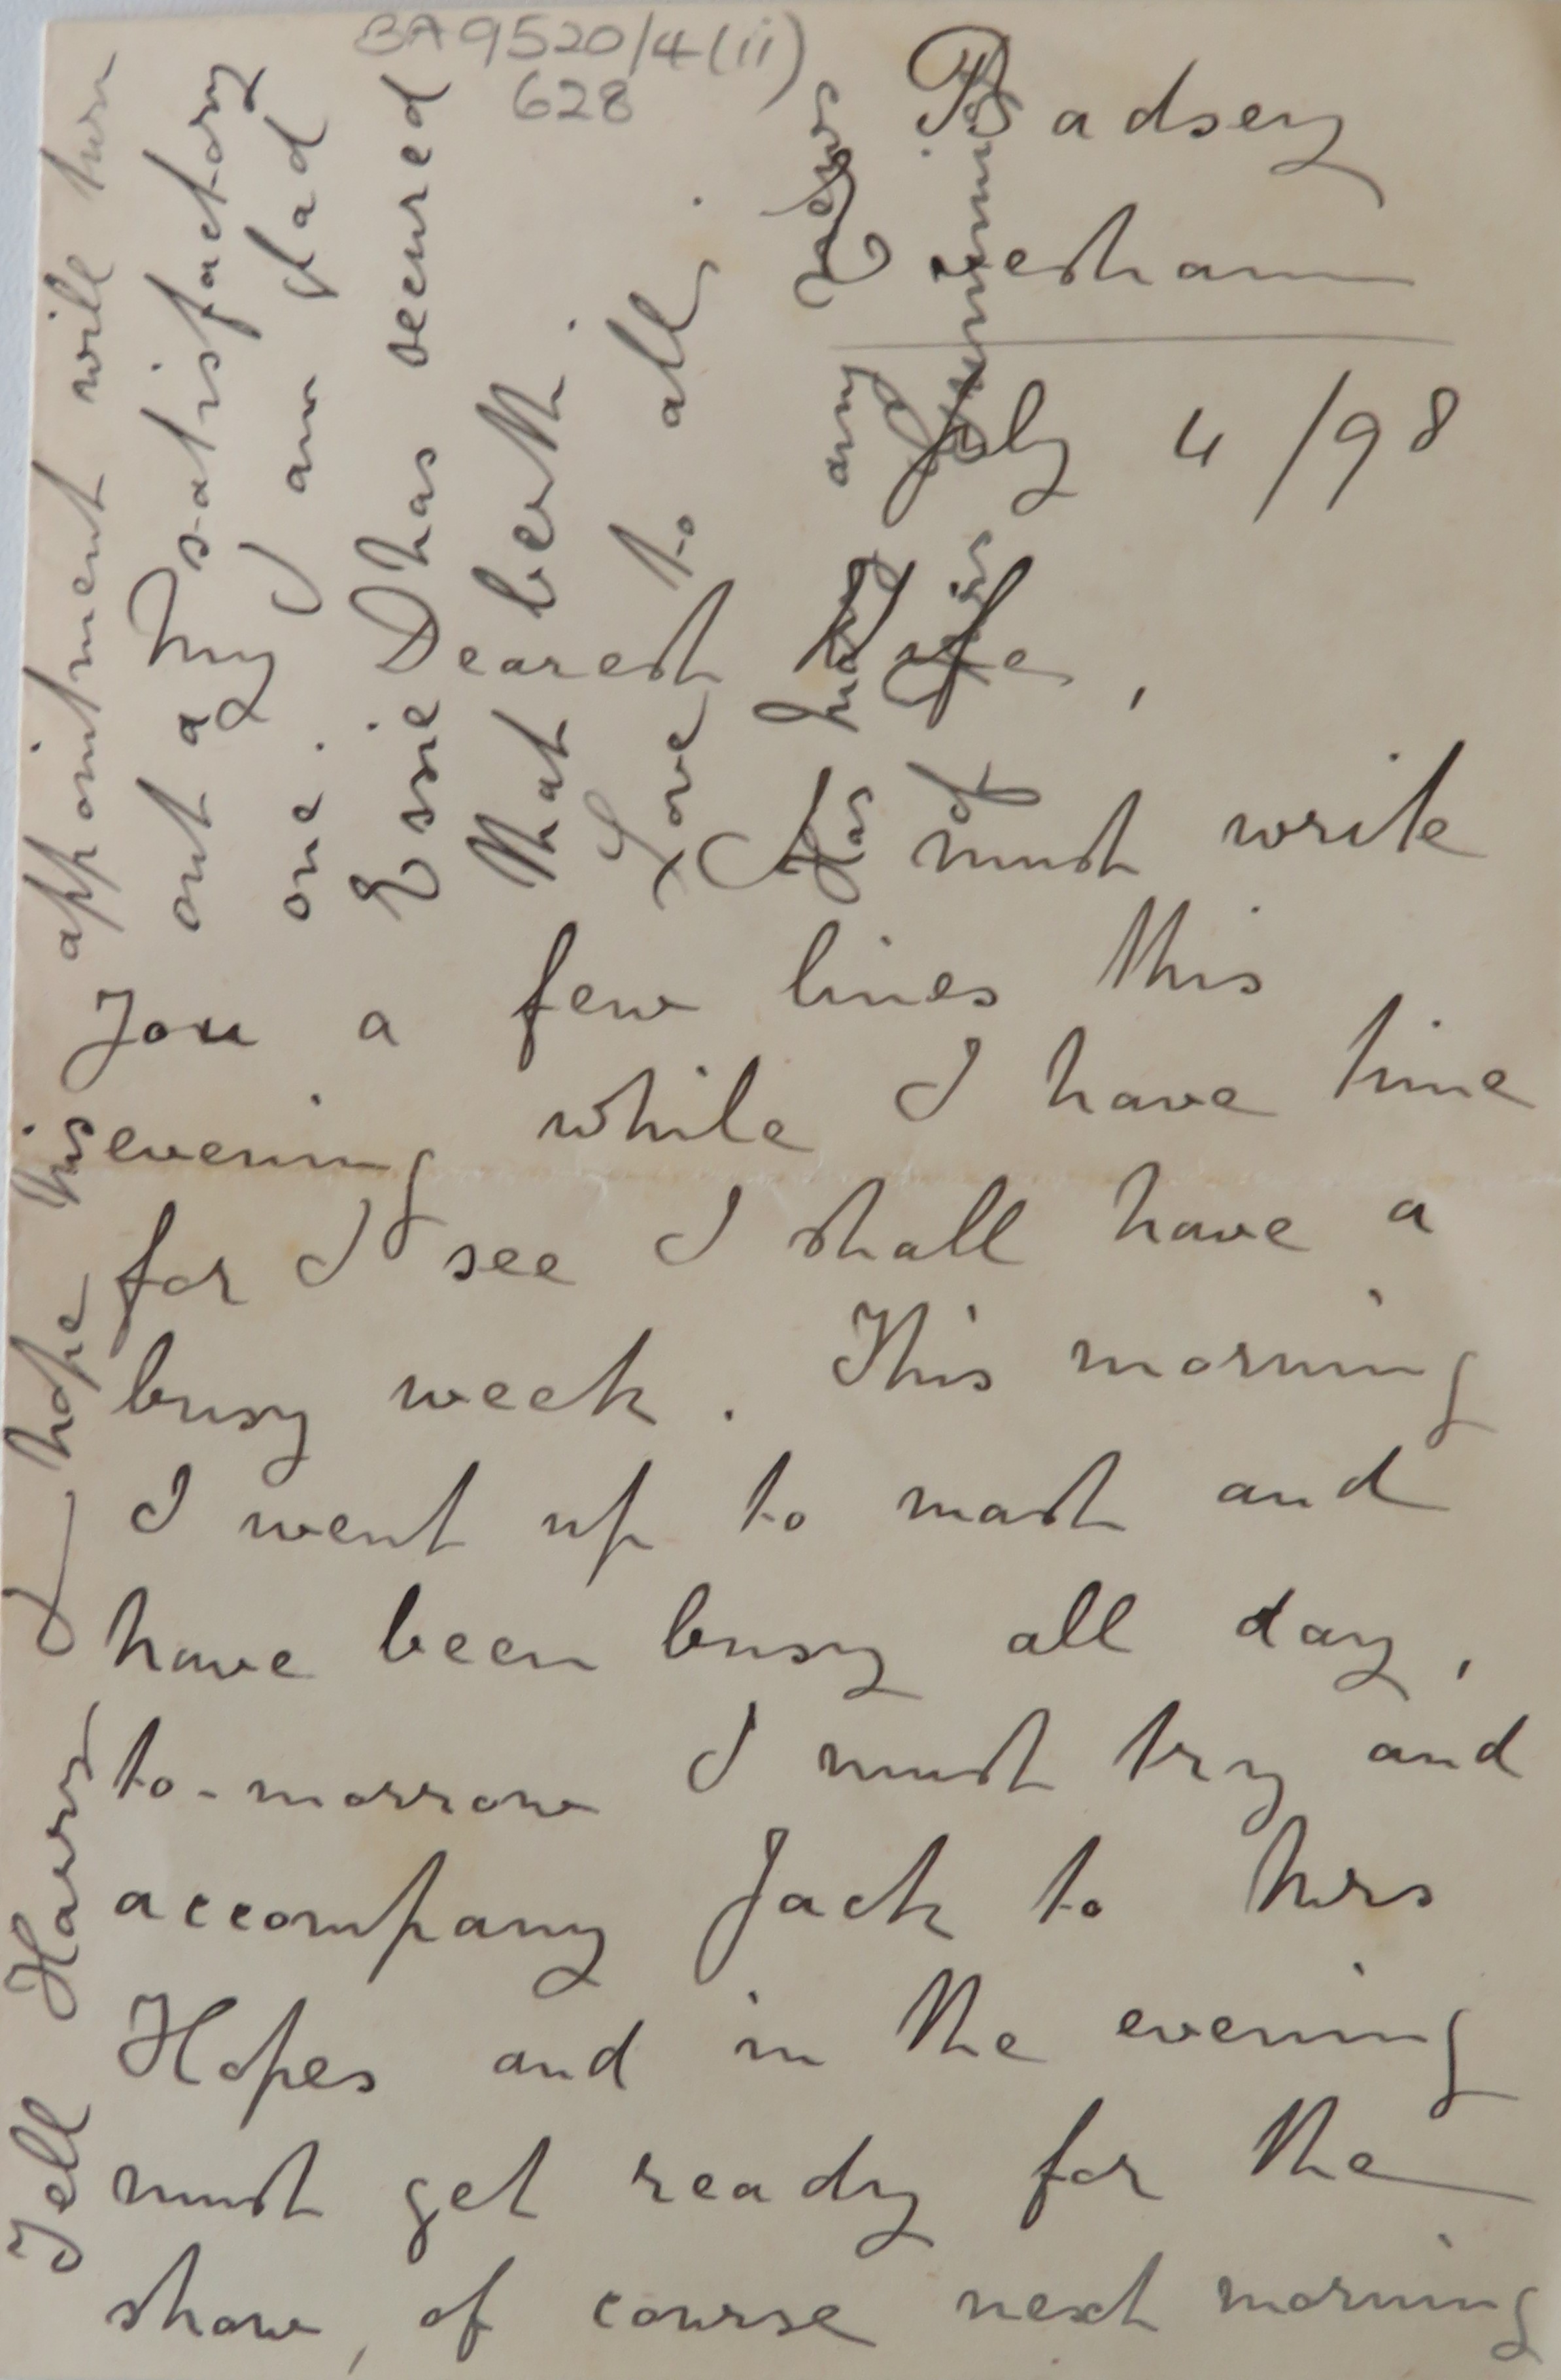 BA9520/4(ii)
628
Badsey
Evesham
July 4/98
My Dearest Kate,
I must write
you a few lines this
evening while I have time
for I see I shall have a
busy week. This morning
I went up to mast and
have been busy all day,
to-morrow I must try and
accompany Jack to Mrs
Hopes and in the evening
must get ready for the
show, of course next morning
Tell Harry I hope his appointment will turn
out a satisfactory
one. I am glad
Essie has secured
that berth.
Love to all.
Has Harry any news
of his